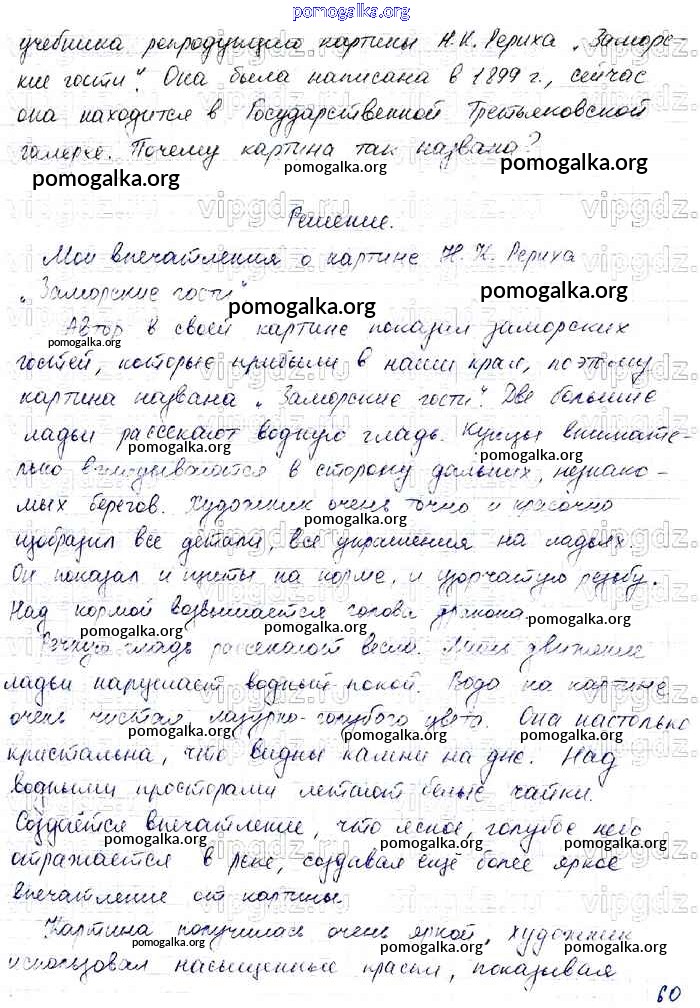 pomogalka.org
учебника репродукцию картины Н.К. Рериха „Заморс-
кие гости". Она была написана в 1899 г., сейчас
она находится в Государственной Третьяковской
галерее. Почему картина так названа?
pomogalka.org pomogalka.org pomogalka.org
Решение.
Мои впечатления о картине Н. К. Рериха
„Заморские гости"
pomogalka.org pomogalka.org
Автор в своей картине показал заморских
гостей, которые прибыли в наши края, поэтому
картина названа „Заморские гости". Две большие
ладьи рассекают водную гладь. Купцы внимате-
льно вглядываются в сторону дальних, незнако-
мых берегов. Художник очень точно и красочно
pomogalka.org
изобразил все детали, все украшения на ладьях.
Он показал и щиты на корме, и узорчатую резьбу.
Над кормой возвышается голова дракона.
pomogalka.org pomogalka.org pomogalka.org
Речную гладь рассекают весла. движение
ладьи нарушает водный покой. Вода на картине
очень чистая лазурно-голубого цвета. Она настолько
pomogalka.org pomogalka.org pomogalka.org
кристальна, что видны камни на дне. Над
водными просторами летают белые чайки.
pomogalka.org pomogalka.org
Создаётся впечатление, что ясное, голубое небо
отражается в реке, создавая ещё более яркое
pomogalka.org
впечатление от картины.
Картина получилась очень яркой, художник
pomogalka.org pomogalka.org pomogalka.org
использовал насыщенные краски, показывая
60